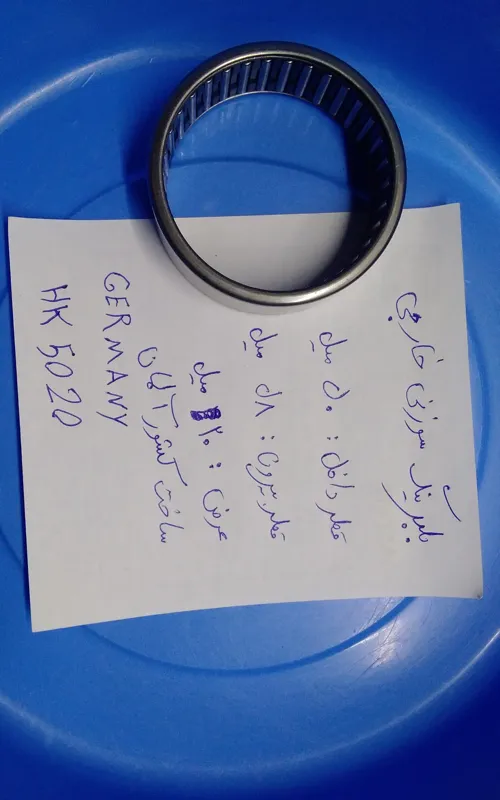 بلبرینگ سوزنی خارجی
قطر داخل : ۵۰ میل
قطر بیرون : ۵۸ میل
عرض : ۲۰ میل
ساخت کشور آلمان
GERMANY
HK 5020